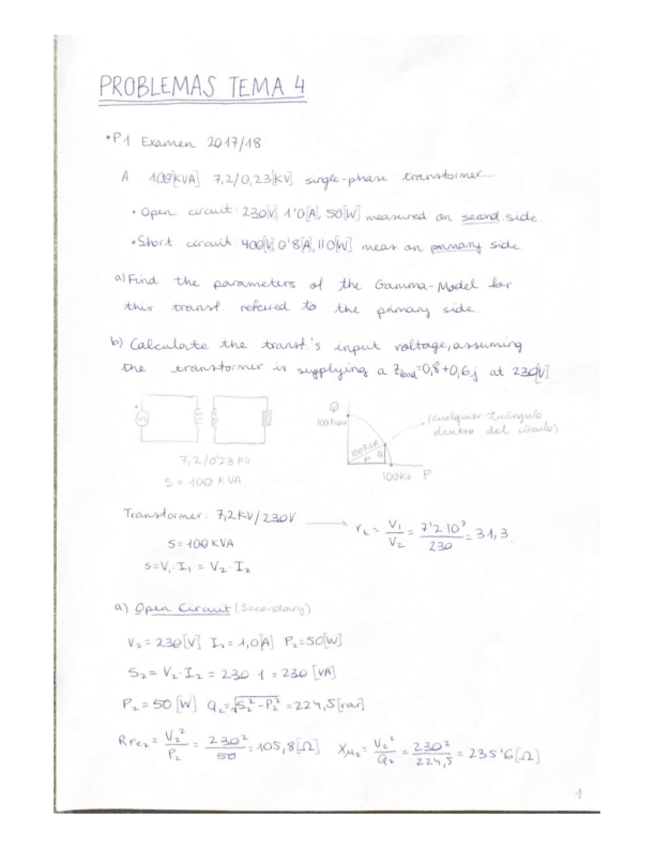 PROBLEMAS TEMA 4
•P1 Examen 2017/18
A 100[KVA] 7,2/0,23[KV] single-phase transformer...
• Open circuit 230[V], 1'0[A], 50[W] measured on second. side.
• Short circuit 400[V], 0'8[A], 110[W] meas on primary side
a) Find the parameters of the Gamma-Model for
this transf refered to the primary side.
b) Calculate the transf.'s input voltage, assuming
the transformer is supplying a Zload=0,8+0,6j at 230[V]
7,2/0'23 KV
S = 100 KVA
Q
100KVAr
100KVA
Q
P
100KW P
(cualquier triángulo
dentro del círculo)
Transformer: 7,2KV/230V
rt = V1/V2 = 7'2·10³/230 = 31,3
S=100 KVA
S=V1·I1 = V2·I2
a) Open Circuit (Secondary)
V2=230[V] I2=1,0[A] P2=50[W]
S2 = V2·I2 = 230·1 = 230 [VA]
P2=50 [W] Q2=√S2²-P2² = 224,5[var]
RFe2 = V2²/P2 = 230²/50 = 105,8[Ω] Xμ2 = V2²/Q2 = 230²/224,5 = 235'6[Ω]
1